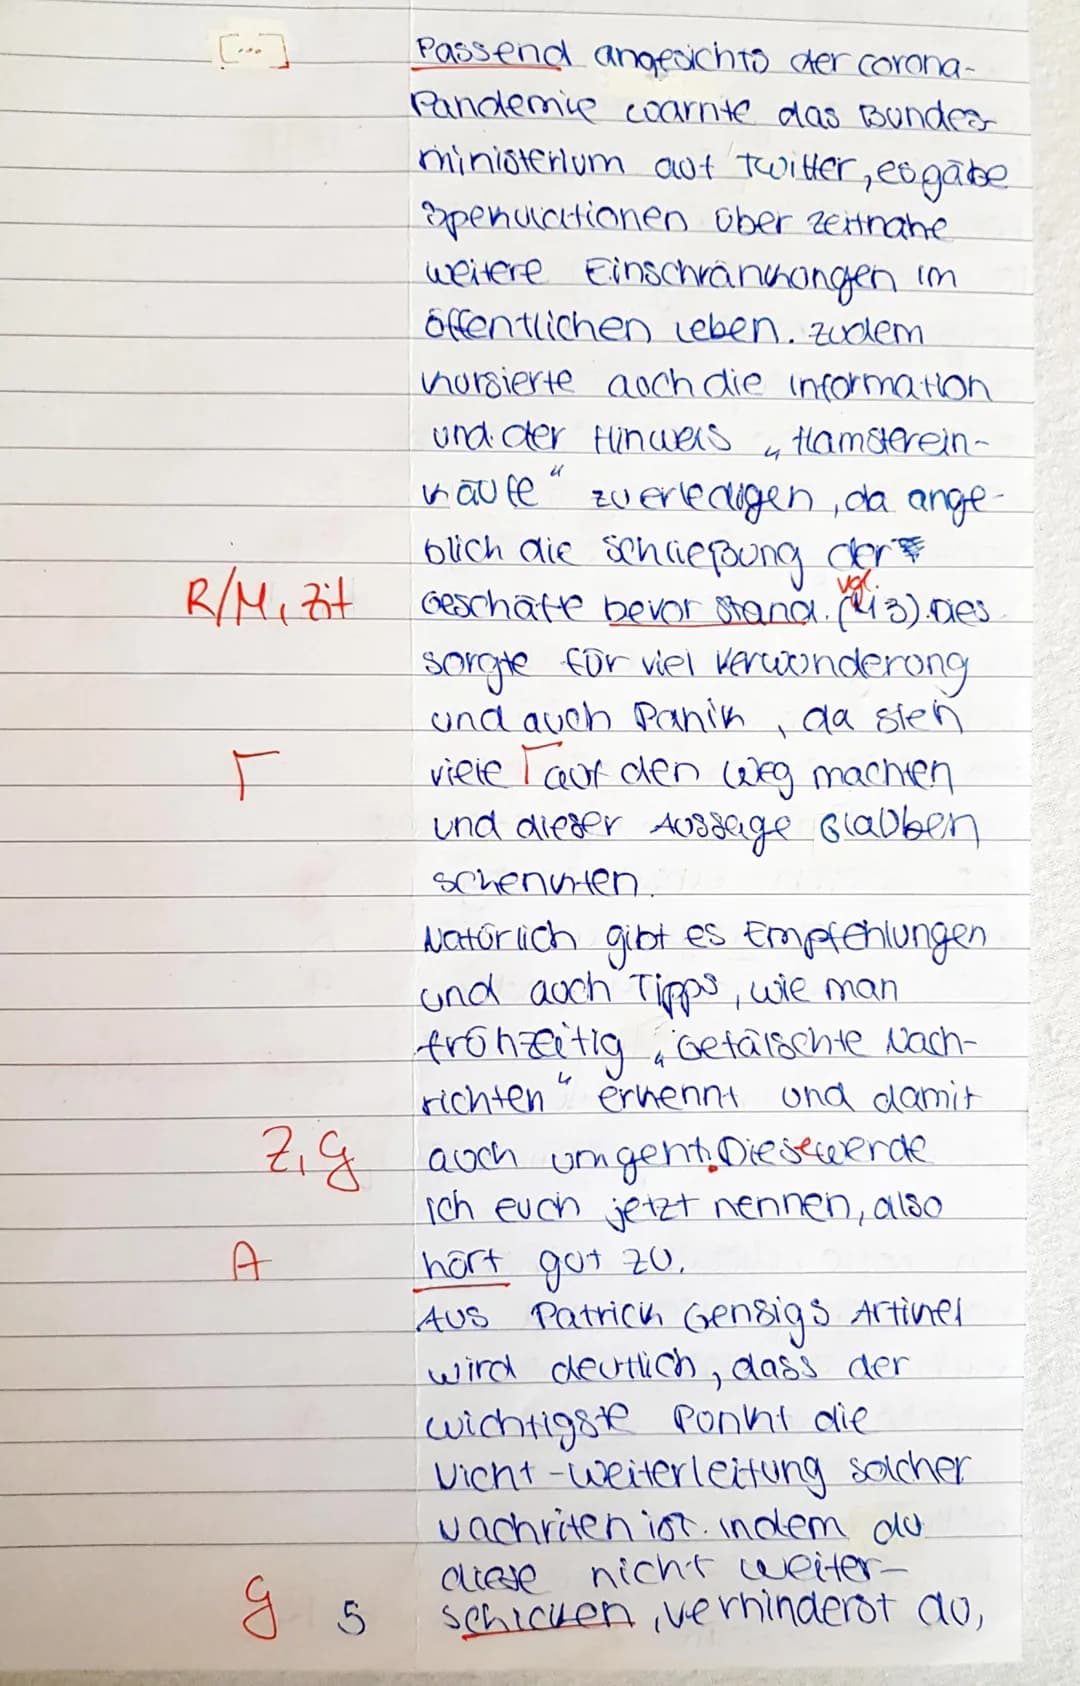 [...]
Passend angesichts der corona-
Pandemie warnte das Bundes-
ministerium auf Twitter, es gäbe
Spekulationen über zeitnahe
weitere Einschränkungen im
öffentlichen Leben. Zudem
kursierte auch die Information
und der Hinweis „Hamsterein-
käufe“ zu erledigen, da ange-
blich die Schließung der
R/M, Zit Geschäfte bevor stand. (vgl. M3). Dies
sorgte für viel Verwunderung
und auch Panik, da sich
Γ viele Γ auf den Weg machten
und dieser Aussage Glauben
schenkten.
Natürlich gibt es Empfehlungen
und auch Tipps, wie man
frühzeitig „Gefälschte Nach-
richten“ erkennt und damit
Z, g auch umgeht. Diese werde
ich euch jetzt nennen, also
A hört gut zu.
Aus Patrick Gensigs Artikel
wird deutlich, dass der
wichtigste Punkt die
Nicht-Weiterleitung solcher
Nachriten ist. Indem du
diese nicht weiter-
g 5 schicken, verhinderst du,